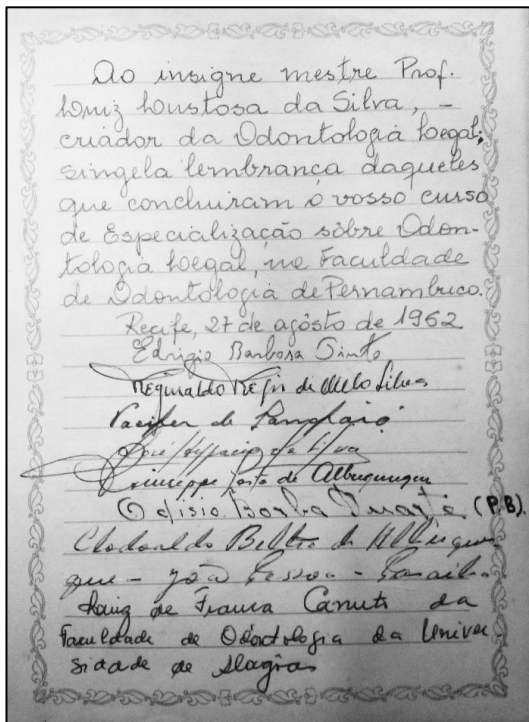 Ao insigne mestre Prof.
Luiz Lustosa da Silva, –
criador da Odontologia Legal;
singela lembrança daqueles
que concluiram o vosso curso
de Especialização sôbre Odon-
tologia Legal, na Faculdade
de Odontologia de Pernambuco.
Recife, 27 de agôsto de 1962
Edrizio Barbosa Pinto
Reginaldo Regis de Mello Silva
de
José da Silva
Giuseppe Costa de Albuquerque
Odisio Borba Duarte (P.B).
Clodoaldo de Albuquer
que – João Pessoa – Paraiba
Luiz de Franca Canuto da
Faculdade de Odontologia da Univer
sidade de Alagôas